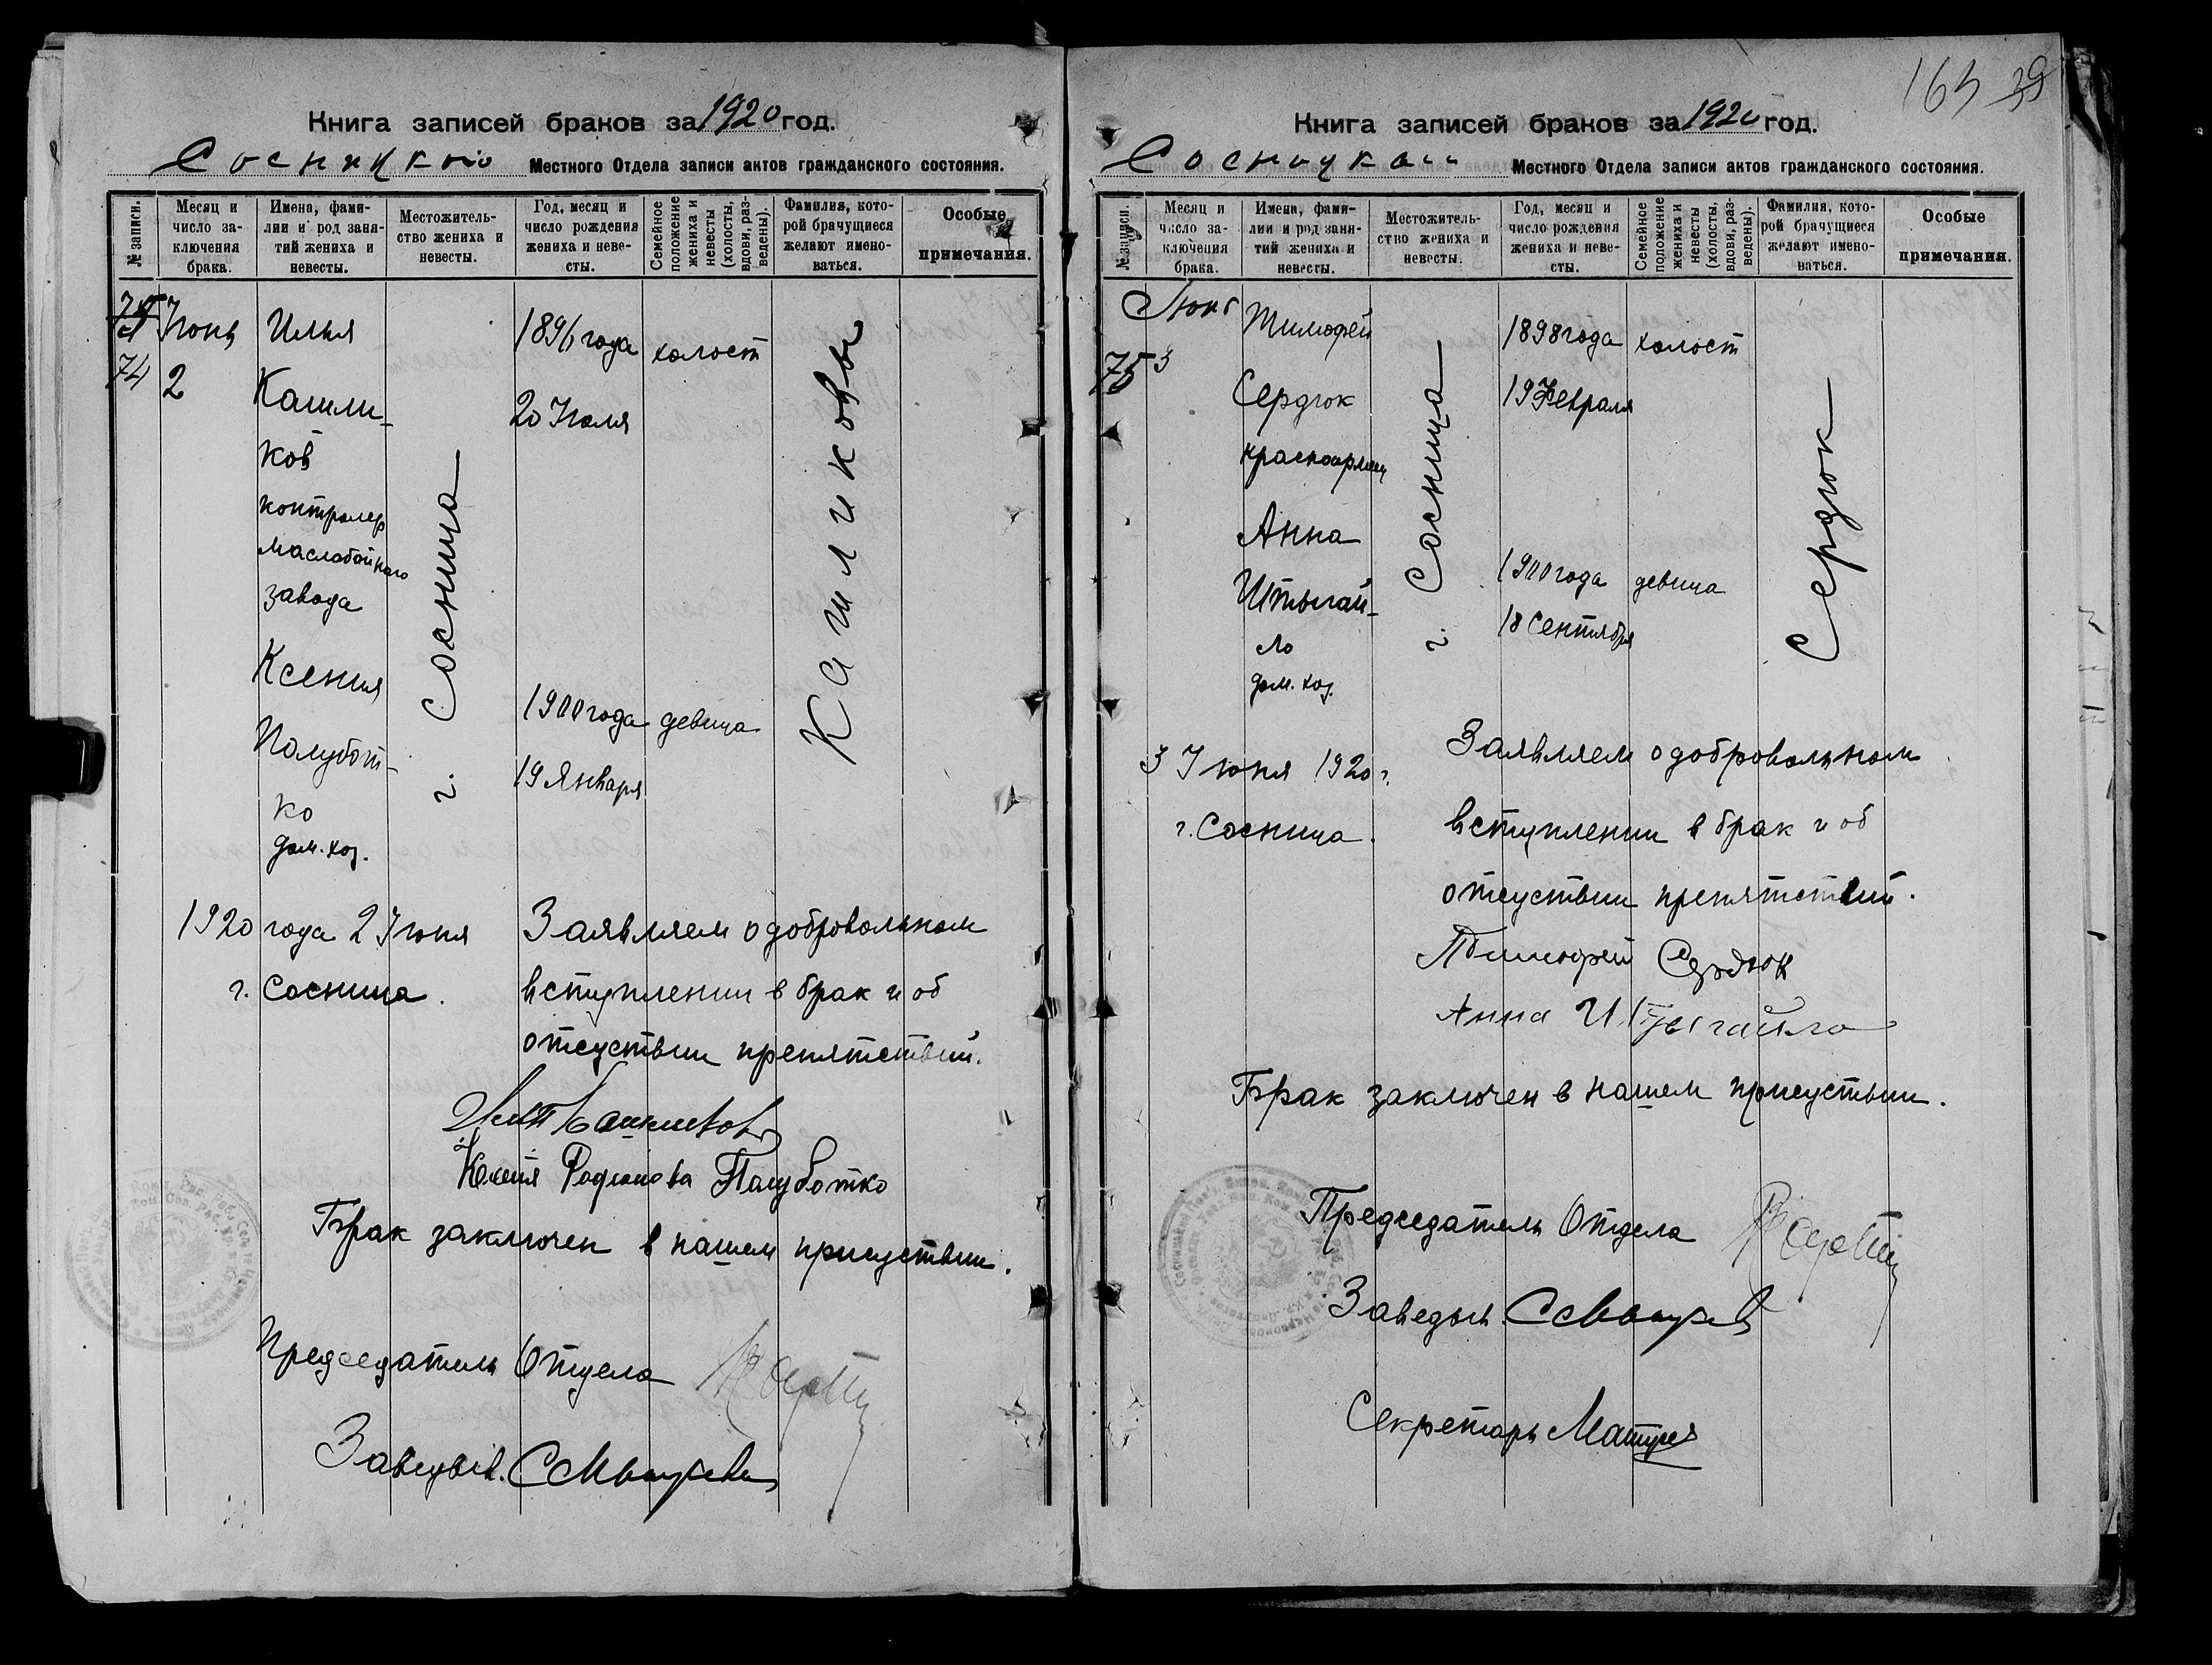 Книга записей браков за 1920 год.
Сосницкого Местного Отдела записи актов гражданского состояния.
№ записи.
Месяц и число за-
ключения
брака.
Имена, фами-
лии и род заня-
тий жениха и
невесты.
Местожитель-
ство жениха и
невесты.
Год, месяц и
число рождения
жениха и неве-
сты.
Семейное
положение
жениха и
невесты
(холосты,
вдовы, раз-
ведены).
Фамилия, кото-
рой брачущиеся
желают имено-
ваться.
Особые
примечания.
74
Июнь
2
Илья
Кашли-
ков
контролер
маслобойного
завода
Ксения
Полубот-
ко
дом. хоз.
г. Сосница
1896 года
20 Июля
1900 года
19 Января
холост
девица
Кашликовы
1920 года 2 Июня
г. Сосница.
Заявляем о добровольном
вступлении в брак и об
отсуствии препятствий.
Полуботко
Брак заключен в нашем присуствии.
Председатель Отдела
Заведыв.
163 39
Книга записей браков за 1920 год.
Сосницкого Местного Отдела записи актов гражданского состояния.
№ записи.
Месяц и
число за-
ключения
брака.
Имена, фами-
лии и род заня-
тий жениха и
невесты.
Местожитель-
ство жениха и
невесты.
Год, месяц и
число рождения
жениха и неве-
сты.
Семейное
положение
жениха и
невесты
(холосты,
вдовы, раз-
ведены).
Фамилия, кото-
рой брачущиеся
желают имено-
ваться.
Особые
примечания.
75
Июнь
3
Тимофей
Сердюк
красноармеец
Анна
Штыгай-
ло
дом. хоз.
г. Сосница
1898 года
19 Февраля
1900 года
18 Сентября
холост
девица
Сердюк
3 Июня 1920 г.
г. Сосница.
Заявляем о добровольном
вступлении в брак и об
отсуствии препятствий.
Тимофей Сердюк
Анна Штыгайло
Брак заключен в нашем присуствии.
Председатель Отдела
Заведыв.
Секретарь